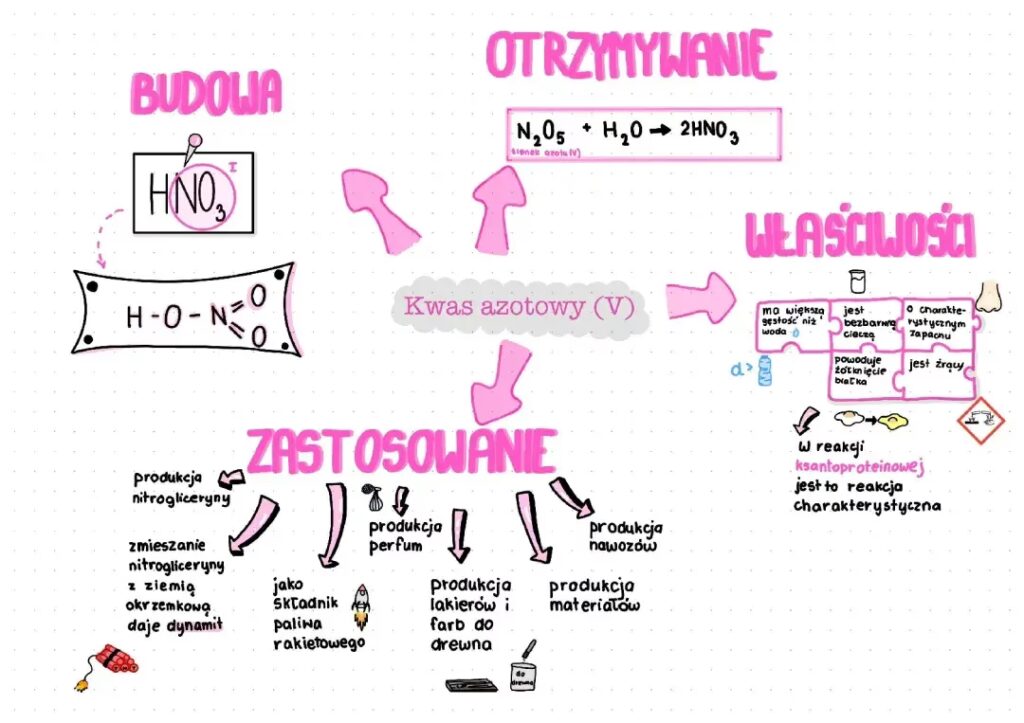 OTRZYMYWANIE
BUDOWA
N₂O₅ + H₂O → 2HNO₃
tlenek azotu (V)
HNO₃
I
H-O-N
O
O
WŁAŚCIWOŚCI
Kwas azotowy (V)
ma większą
gęstość niż
woda
jest
bezbarwną
cieczą
o charakte-
rystycznym
zapachu
powoduje
żółknięcie
białka
jest żrący
d>
W reakcji
ksantoproteinowej
jest to reakcja
charakterystyczna
ZASTOSOWANIE
produkcja
nitrogliceryny
zmieszanie
nitrogliceryny
z ziemią
okrzemkową
daje dynamit
TNT
jako
składnik
paliwa
rakietowego
produkcja
perfum
produkcja
lakierów i
farb do
drewna
do
drewna
produkcja
materiałów
produkcja
nawozów